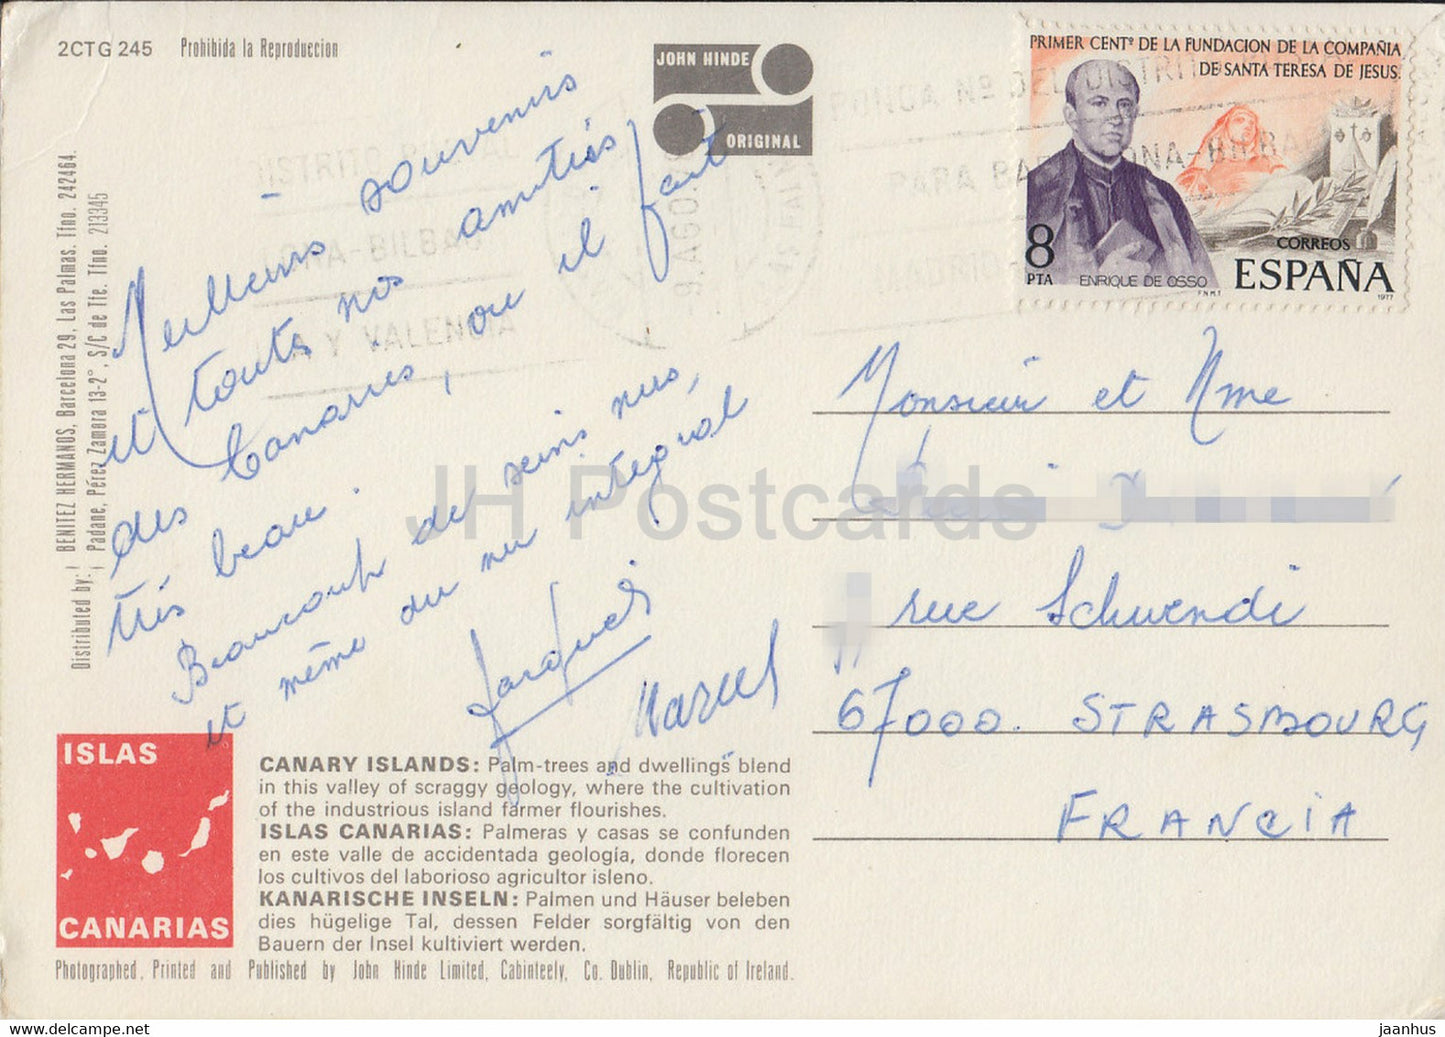 2CTG 245 Prohibida la Reproduccion
JOHN HINDE
ORIGINAL
PRIMER CENTº DE LA FUNDACION DE LA COMPAÑIA
DE SANTA TERESA DE JESUS.
8
PTA
ENRIQUE DE OSSO
F.N.M.T.
CORREOS
ESPAÑA
1977
DISTRITO POSTAL
PARA BARCELONA-BILBAO
LONA-BILBAO
Y VALENCIA
MADRID
Meilleurs souvenirs
et toutes nos amitiés
des Canaries, ou il fait
très beau.
Beaucoup de seins nus,
et même du nu intégral
Jacques
Marcel
Monsieur et Mme
rue Schwendi
67000. STRASBOURG
FRANCIA
Distributed by:
BENITEZ HERMANOS, Barcelona 29, Las Palmas. Tfno. 242464.
Padane, Pérez Zamora 13-2º, S/C de Tfe. Tfno. 213345
ISLAS
CANARIAS
CANARY ISLANDS: Palm-trees and dwellings blend
in this valley of scraggy geology, where the cultivation
of the industrious island farmer flourishes.
ISLAS CANARIAS: Palmeras y casas se confunden
en este valle de accidentada geología, donde florecen
los cultivos del laborioso agricultor isleno.
KANARISCHE INSELN: Palmen und Häuser beleben
dies hügelige Tal, dessen Felder sorgfältig von den
Bauern der Insel kultiviert werden.
Photographed, Printed and Published by John Hinde Limited, Cabinteely, Co. Dublin, Republic of Ireland.
JH Postcards
https://www.ebay.com/usr/jaanhus
jaanhus